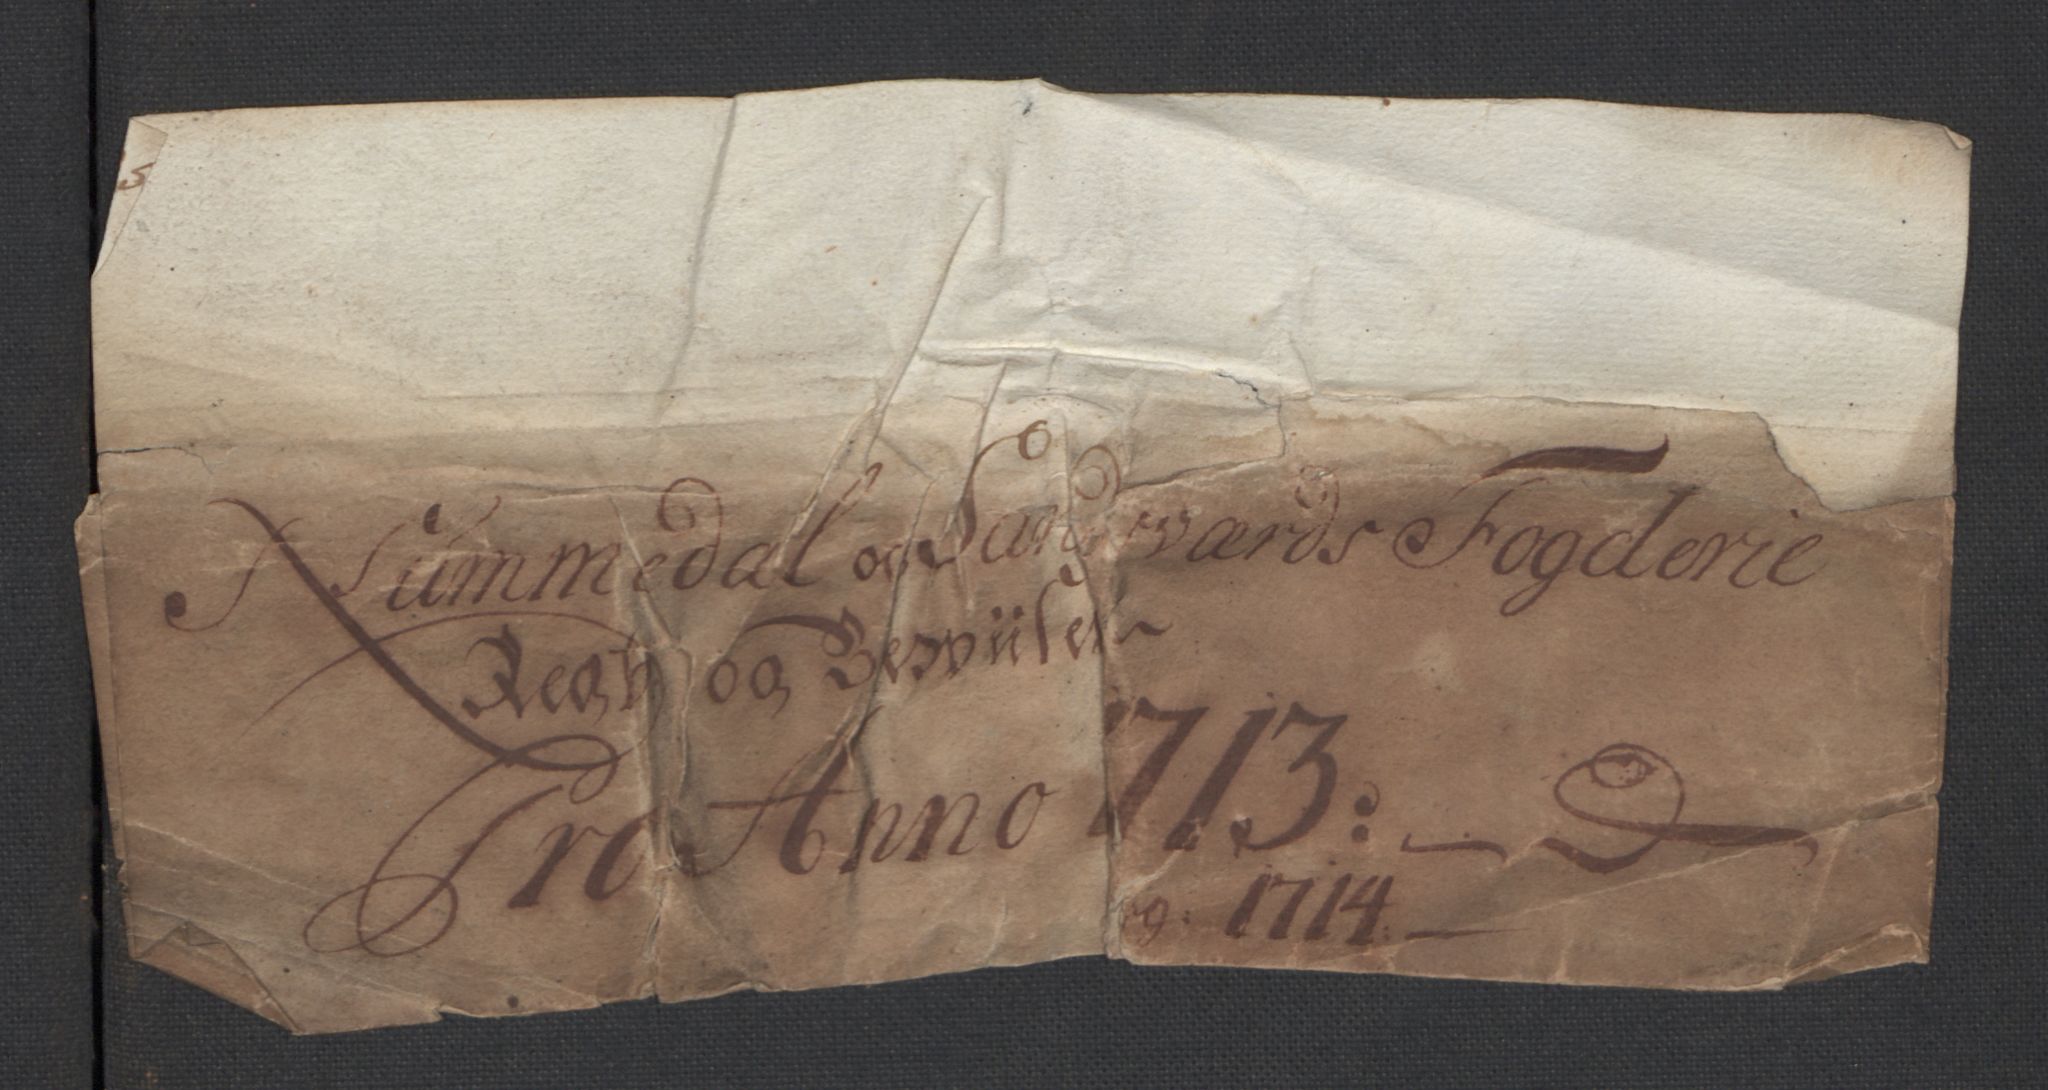 Nummedal og Sandsværds Fogderie
Regn og Beviiser
Pro Anno 1713:
og: 1714.